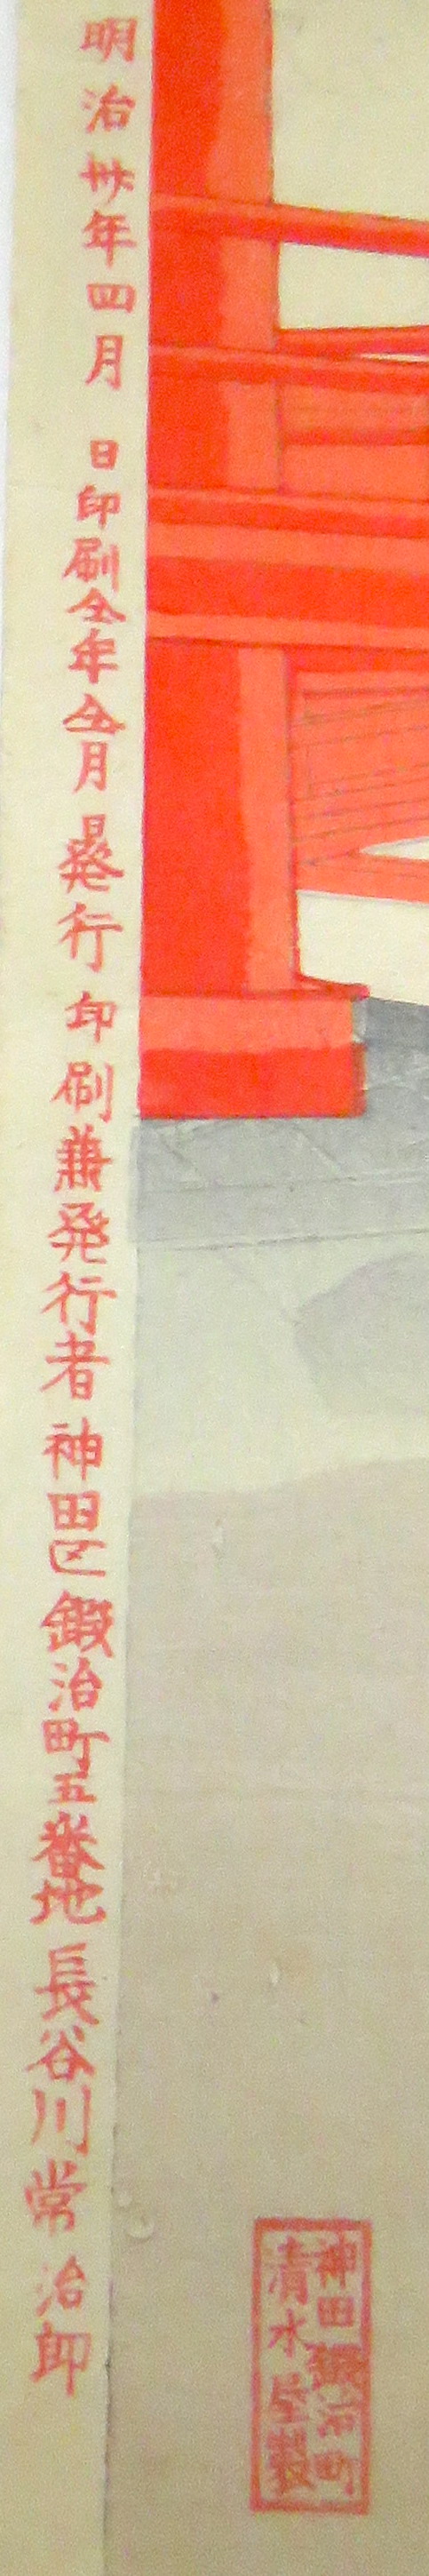 明治卅年四月　日印刷仝年仝月　日発行印刷兼発行者神田区鍛冶町五番地長谷川常治郎
神田鍛冶町
清水屋製